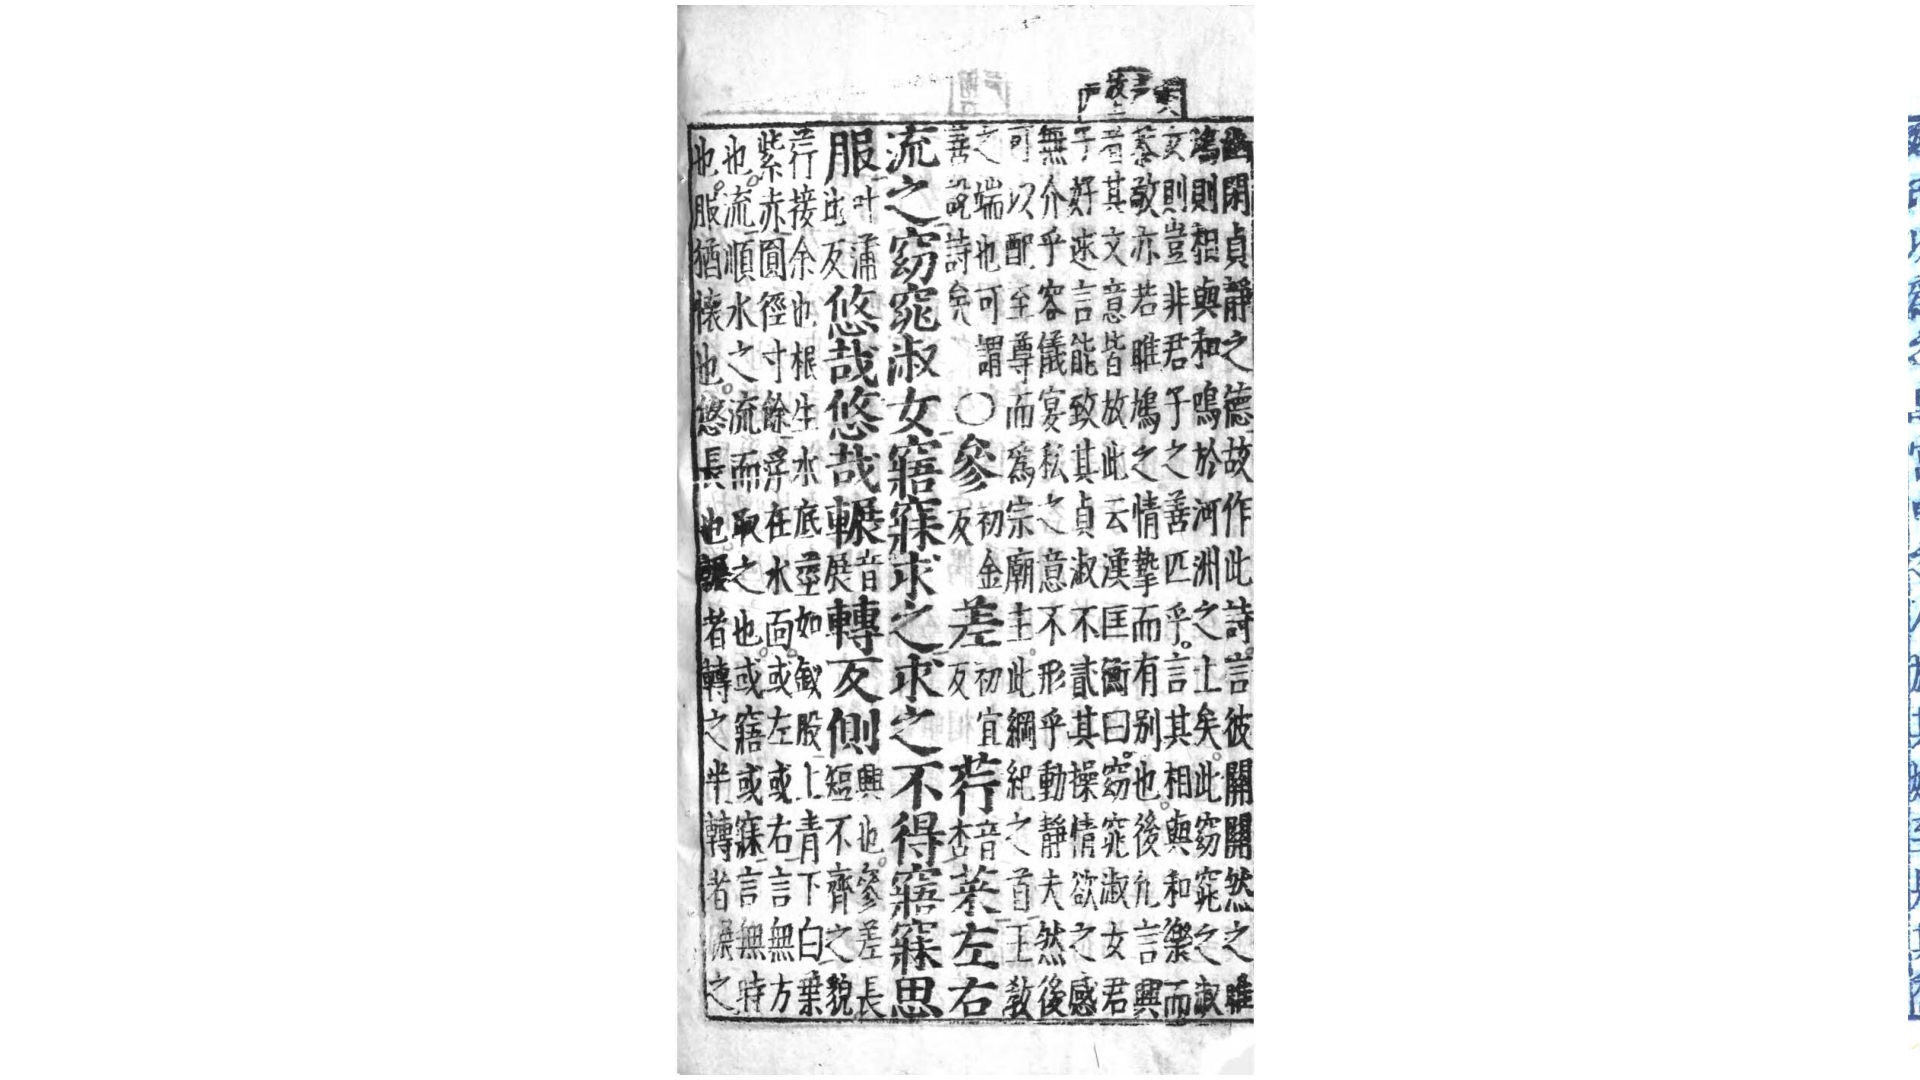 幽閑貞靜之德故作此詩言彼關關然之雎
鳩則相與和鳴於河洲之上矣此窈窕之淑
女則豈非君子之善匹乎言其相與和樂而
恭敬亦若雎鳩之情摯而有別也後凢言興
者其文意皆放此云漢匡衡曰窈窕淑女君
子好逑言能致其貞淑不貳其操情欲之感
無介乎容儀宴私之意不形乎動靜夫然後
可以配至尊而爲宗廟主此綱紀之首王敎
之端也可謂
善說詩矣
○參
初金
反
差
初宜
反
荇
音
杏
菜左右
流之窈窕淑女寤寐求之求之不得寤寐思
服
叶蒲
北反
悠哉悠哉輾
音
展
轉反側
興也參差長
短不齊之貌
荇接余也根生水底莖如釵股上青下白葉
紫赤圓徑寸餘浮在水面或左或右言無方
也流順水之流而取之也或寤或寐言無時
也服猶懷也悠長也輾者轉之半轉者輾之